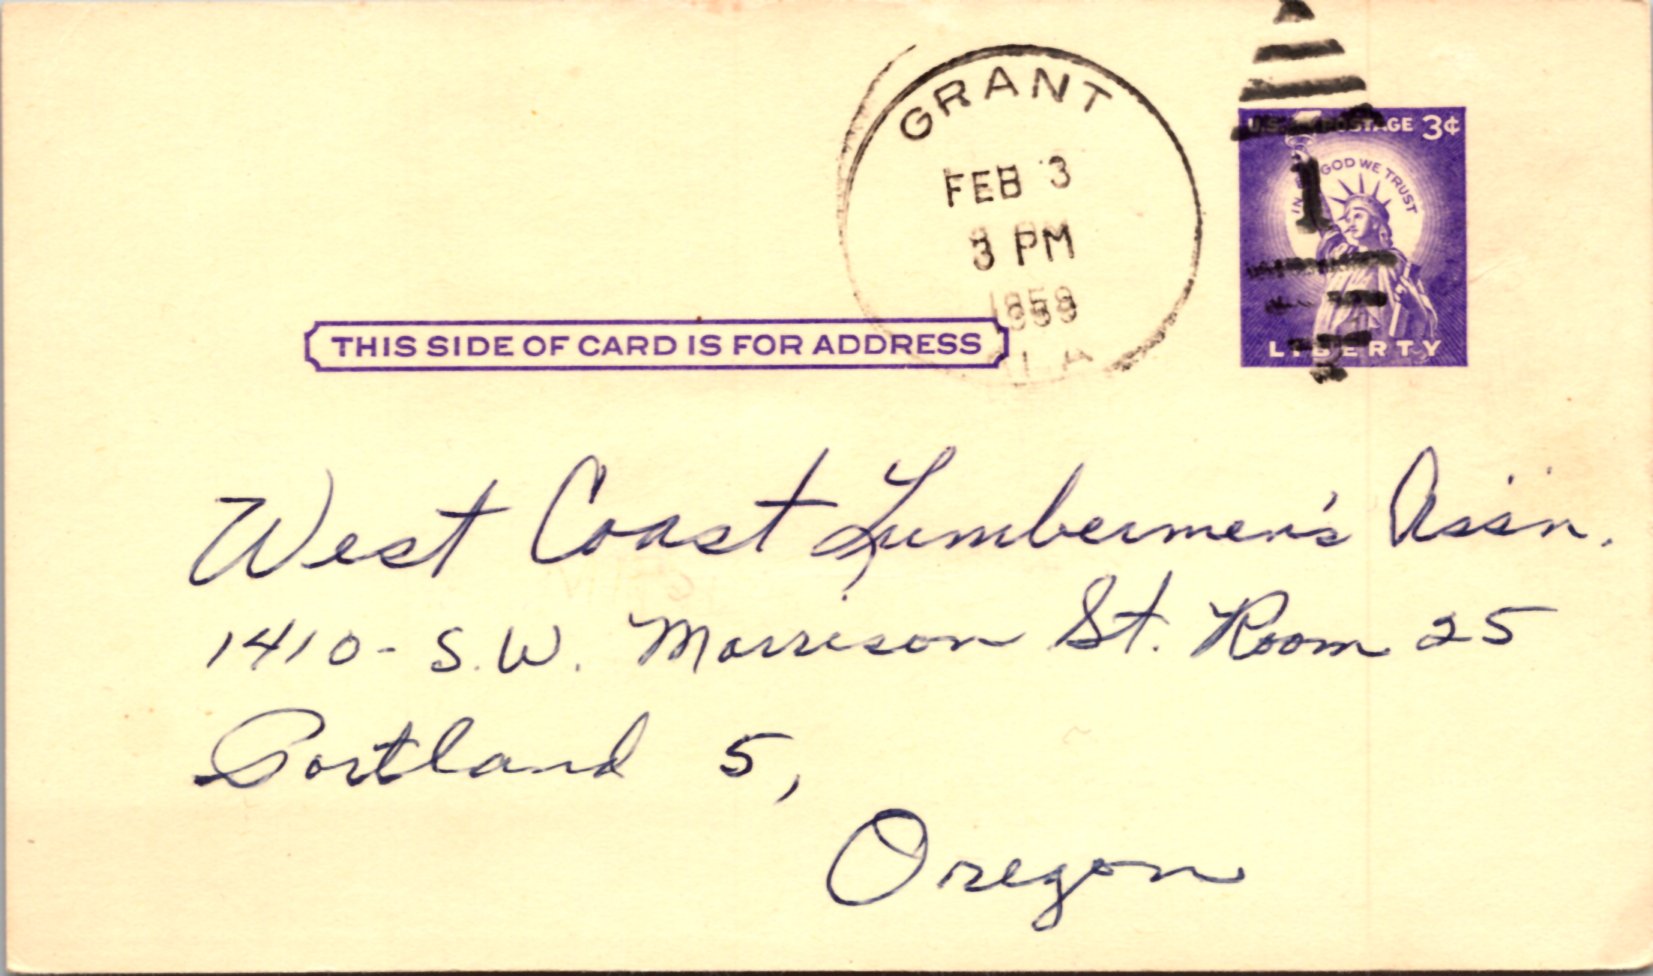 GRANT
FEB 3
3 PM
1959
LA
U.S. POSTAGE 3¢
IN GOD WE TRUST
1
LIBERTY
THIS SIDE OF CARD IS FOR ADDRESS
West Coast Lumbermen's Ass'n.
1410 - S.W. Morrison St. Room 25
Portland 5,
Oregon